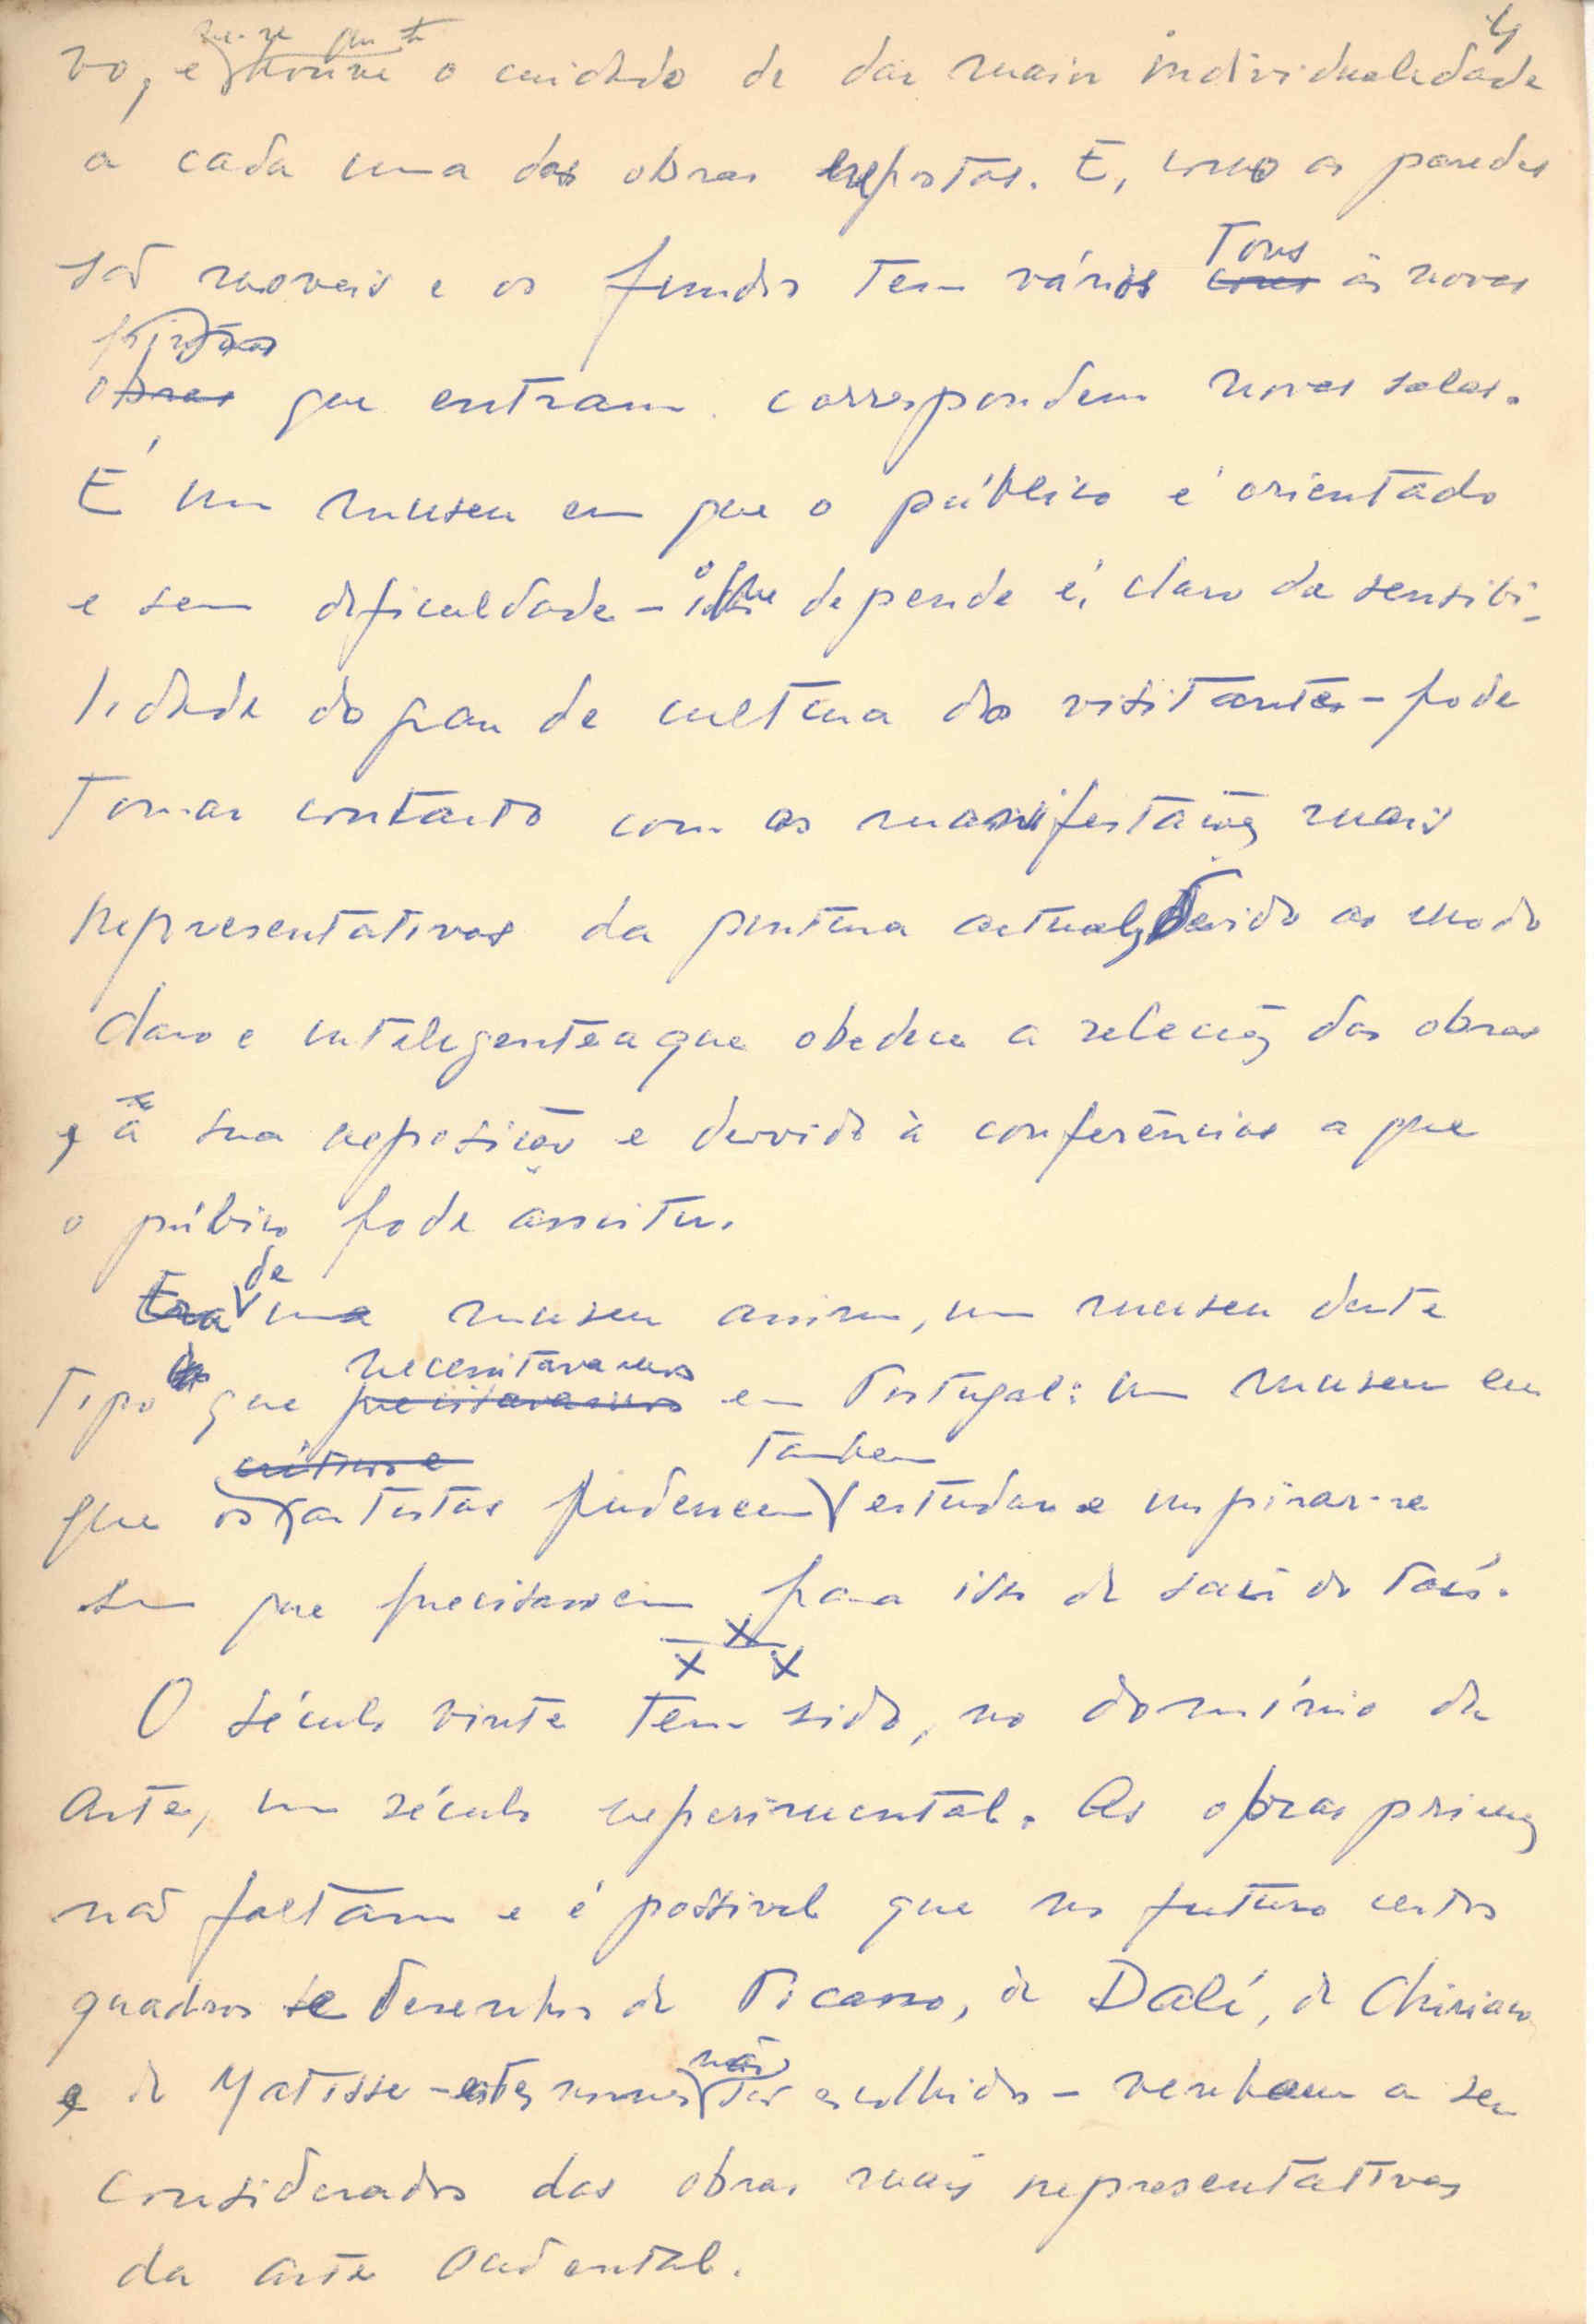 4
vo, e houve o cuidado de dar maior individualidade
a cada uma das obras expostas. E, como as paredes
são moveis e os fundos tem vários tons cores às novas
pinturas
obras que entram correspondem novas salas.
É um museu em que o público é orientado
e sem dificuldade - o que depende é, claro da sensibi-
lidade do grau de cultura dos visitantes - pode
tomar contacto com as manifestações mais
representativas da pintura actual, devido ao modo
claro e inteligente a que obedece a selecção das obras
e à sua exposição e devido à conferências a que
o público pode assistir.
Era de um museu assim, um museu deste
tipo que necessitavamos precisavamos em Portugal: um museu em
que os críticos e artistas pudessem tambem estudar e inspirar-se
sem que precisassem para isso de sair do País.
x
x x
O século vinte tem sido, no domínio da
Arte, um século experimental. As obras primas
não faltam e é possivel que no futuro certos
quadros e desenhos de Picasso, de Dalí, de Chirico
e de Matisse - estes nomes não são escolhidos - venham a ser
considerados das obras mais representativas
da arte Ocidental.